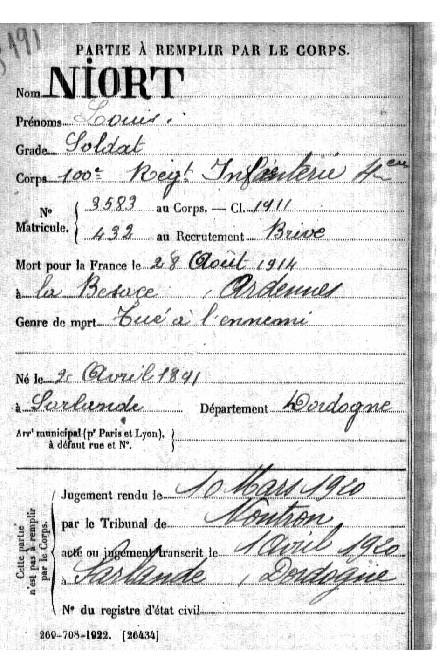 191
PARTIE À REMPLIR PAR LE CORPS.
Nom NIORT
Prénoms Louis
Grade Soldat
Corps 100e Régt Infanterie
No Matricule. 3583 au Corps. — Cl. 1911
432 au Recrutement Brive
Mort pour la France le 28 Août 1914
à la Besace, Ardennes
Genre de mort Tué à l'ennemi
Né le 2 Avril 1891
à Sarlande Département Dordogne
Arrt municipal (pr Paris et Lyon),
à défaut rue et No.
Cette partie n'est pas à remplir par le Corps.
Jugement rendu le 10 Mars 1920
par le Tribunal de Nontron
acte ou jugement transcrit le 1 Avril 1920
à Sarlande, Dordogne
No du registre d'état civil
269-708-1922. [26434]